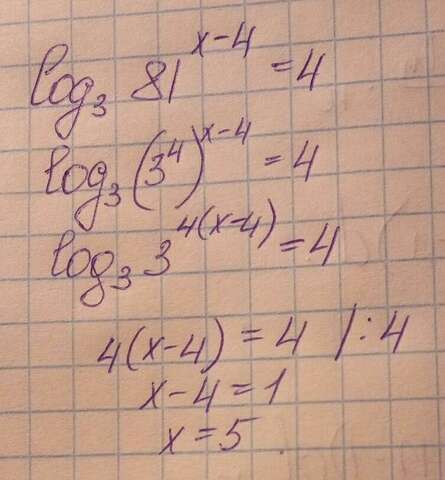 log₃ 81^(x-4) = 4
log₃ (3⁴)^(x-4) = 4
log₃ 3^4(x-4) = 4
4(x-4) = 4 | : 4
x-4=1
x=5